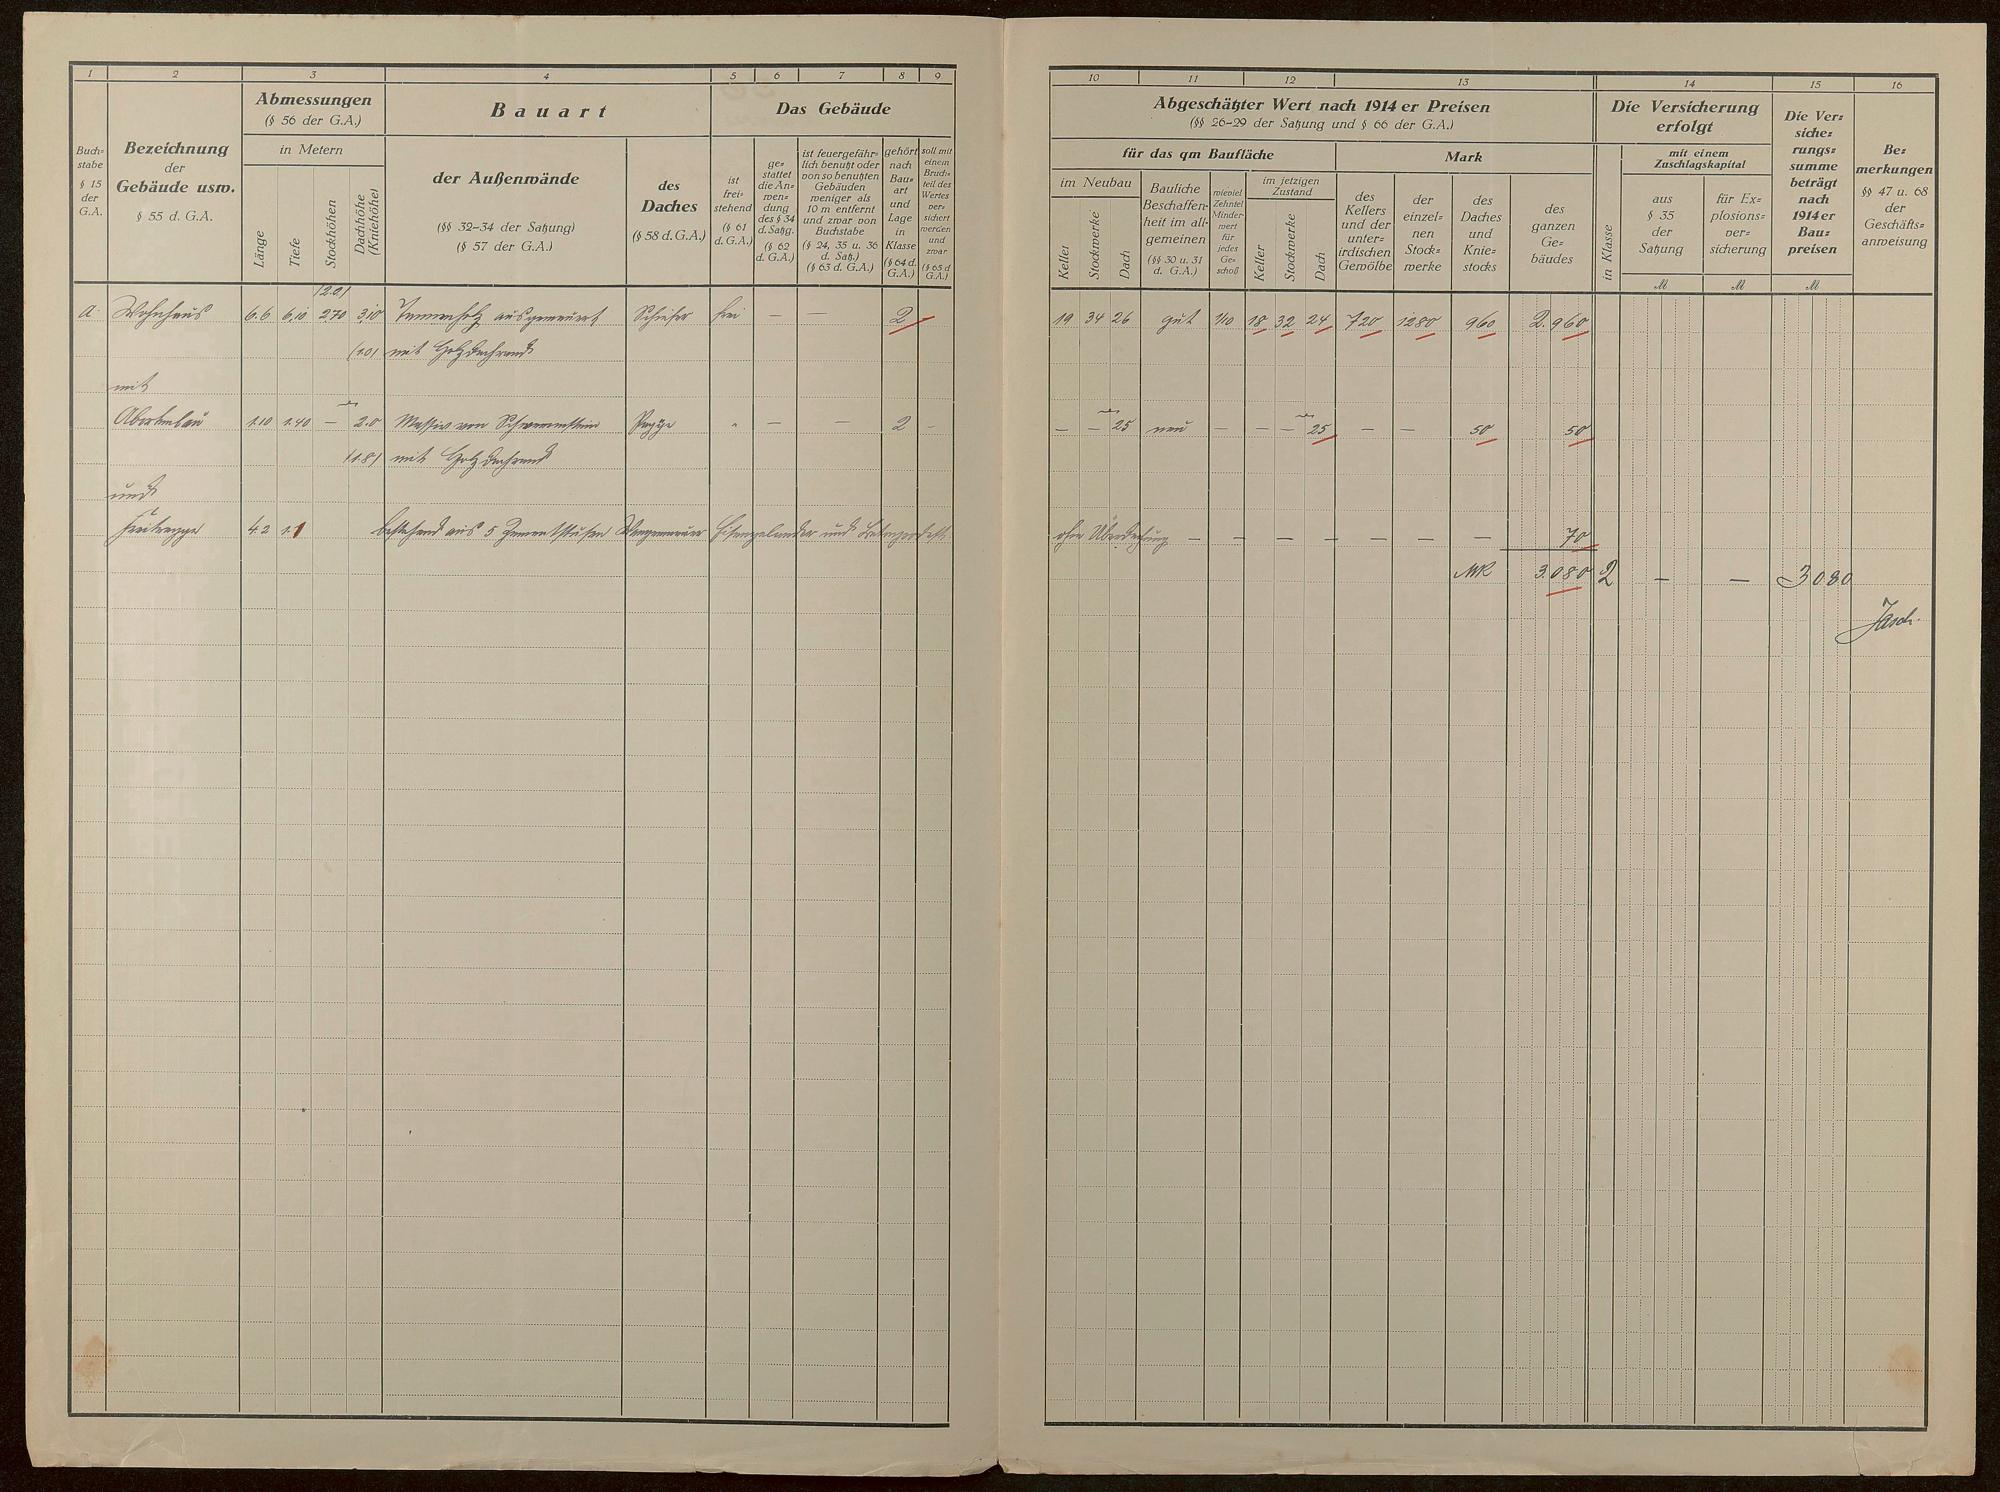 1 2 3 4 5 6 7 8 9
Buch=
stabe
§ 15
der
G.A.
Bezeichnung
der
Gebäude usw.
§ 55 d. G.A.
Abmessungen
(§ 56 der G.A.)
in Metern
Länge
Tiefe
Stockhöhen
Dachhöhe
(Kniehöhe)
Bauart
der Außenwände
(§§ 32-34 der Satzung)
(§ 57 der G.A.)
des
Daches
(§ 58 d. G.A.)
Das Gebäude
ist
frei=
stehend
(§ 61
d. G.A.)
ge=
stattet
die An=
wen=
dung
des § 34
d. Satzg.
(§ 62
d. G.A.)
ist feuergefähr=
lich benutzt oder
von so benutzten
Gebäuden
weniger als
10 m entfernt
und zwar von
Buchstabe
(§ 24, 35 u. 36
d. Satz.)
(§ 63 d. G.A.)
gehört
nach
Bau=
art
und
Lage
in
Klasse
(§ 64 d.
G.A.)
soll mit
einem
Bruch=
teil des
Wertes
ver=
sichert
werden
und
zwar
(§ 65 d
G.A.)
(2.2)
a. Wohnhaus 6.6 6,10 2.70 3,10 Tannenholz ausgemauert Schiefer frei — — 2
(1.0) mit Holzdachrand
mit
Abortanbau 1.10 1.40 — 2.0 Massiv von Schwemmstein Pappe " — — 2 –
(1.8) mit Holzdachrand
und
Freitreppe 4.2 1.1 bestehend aus 5 Zementstufen Eisengeländer und Betonpodest
10 11 12 13 14 15 16
Abgeschätzter Wert nach 1914 er Preisen
(§§ 26-29 der Satzung und § 66 der G.A.)
für das qm Baufläche
Mark
im Neubau
Keller
Stockwerke
Dach
Bauliche
Beschaffen=
heit im all=
gemeinen
(§§ 30 u. 31
d. G.A.)
wieviel
Zehntel
Minder=
wert
für
jedes
Ge=
schoß
im jetzigen
Zustand
Keller
Stockwerke
Dach
des
Kellers
und der
unter=
irdischen
Gewölbe
der
einzel=
nen
Stock=
werke
des
Daches
und
Knie=
stocks
des
ganzen
Ge=
bäudes
Die Versicherung
erfolgt
in Klasse
mit einem
Zuschlagskapital
aus
§ 35
der
Satzung
für Ex=
plosions=
ver=
sicherung
Die Ver=
siche=
rungs=
summe
beträgt
nach
1914 er
Bau=
preisen
Be=
merkungen
§§ 47 u. 68
der
Geschäfts=
anweisung
M M M
19 34 26 gut 1/10 18 32 24 720 1280 960 2.960
— — 25 neu — — — 25 — — 50 50
ohne Überdachung — — — — — — — — — 70
MK 3.080 2 — — 3080
Jasch.